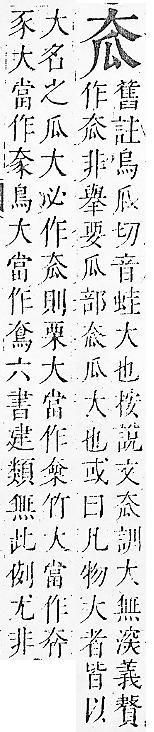 ⿱大瓜
舊註烏瓜切音蛙大也按說文⿱大瓜訓大無深義贅
作⿱大瓜非舉要瓜部⿱大瓜瓜大也或曰凡物大者皆以
大名之瓜大必作⿱大瓜則栗大當作竹大當作⿱大竹
豕大當作⿱大豕鳥大當作⿱大鳥六書建類無此例尤非